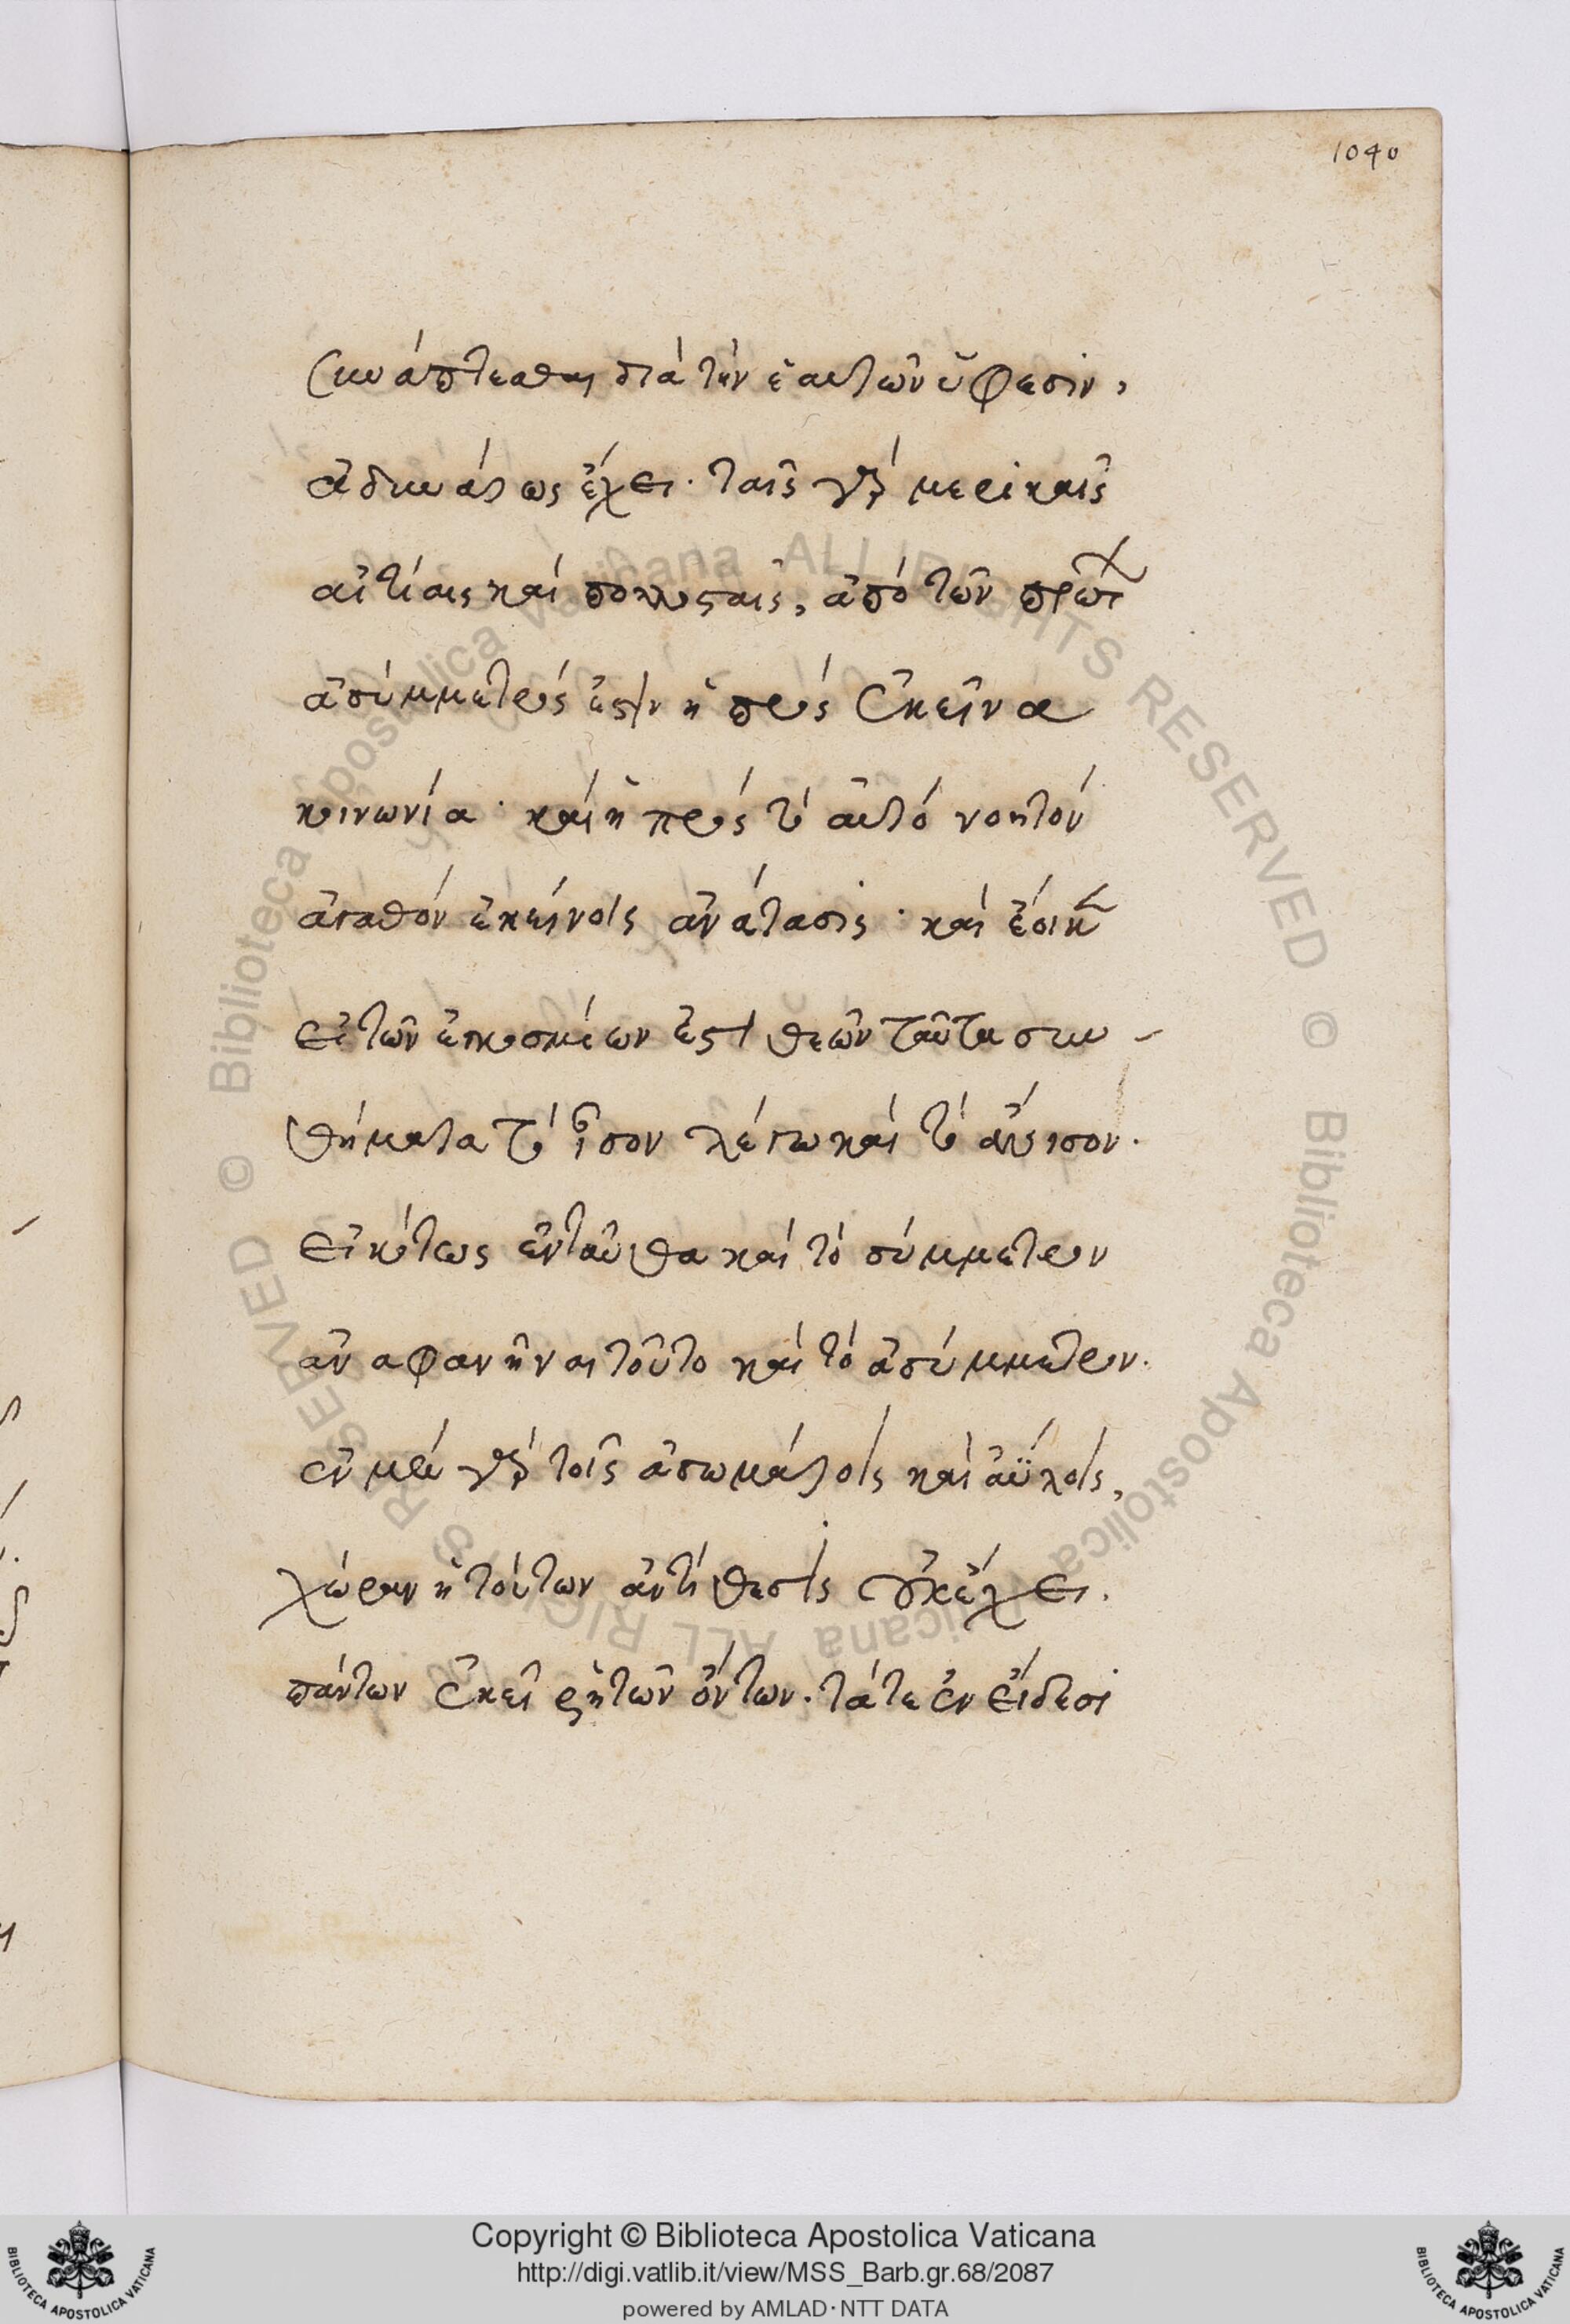 1040
συνάπτεσθαι διὰ τὴν ἑαυτῶν ὕφεσιν,
ἀδυνάτως ἔχει. ταῖς γὰρ μερικαῖς
αἰτίαις καὶ πολλοσταῖς, ἀπὸ τῶν πρώτ
ἀσύμμετρός ἐστιν ἡ πρὸς ἐκεῖνα
κοινωνία· καὶ ἡ πρὸς τὸ αὐτὸ νοητὸν
ἀγαθὸν ἐκείνοις ἀνάτασις· καὶ ἔοικ
εἰ τῶν ἐγκοσμίων ἐστὶ θεῶν ταῦτα συν-
θήματα τὸ ἴσον λέγω καὶ τὸ ἄνισον.
εἰκότως ἐνταῦθα καὶ τὸ σύμμετρον
ἀναφανῆναι τοῦτο καὶ τὸ ἀσύμμετρον.
ἐν μὲν γὰρ τοῖς ἀσωμάτοις καὶ ἀΰλοις,
χώραν ἡ τούτων ἀντίθεσις οὐκ ἔχει.
πάντων ἐκεῖ ῥητῶν ὄντων. τά τε ἐν εἴδεσι
© Biblioteca Apostolica Vaticana ALL RIGHTS RESERVED
© Biblioteca Apostolica Vaticana ALL RIGHTS RESERVED
Copyright © Biblioteca Apostolica Vaticana
http://digi.vatlib.it/view/MSS_Barb.gr.68/2087
powered by AMLAD·NTT DATA
BIBLIOTECA APOSTOLICA VATICANA
BIBLIOTECA APOSTOLICA VATICANA